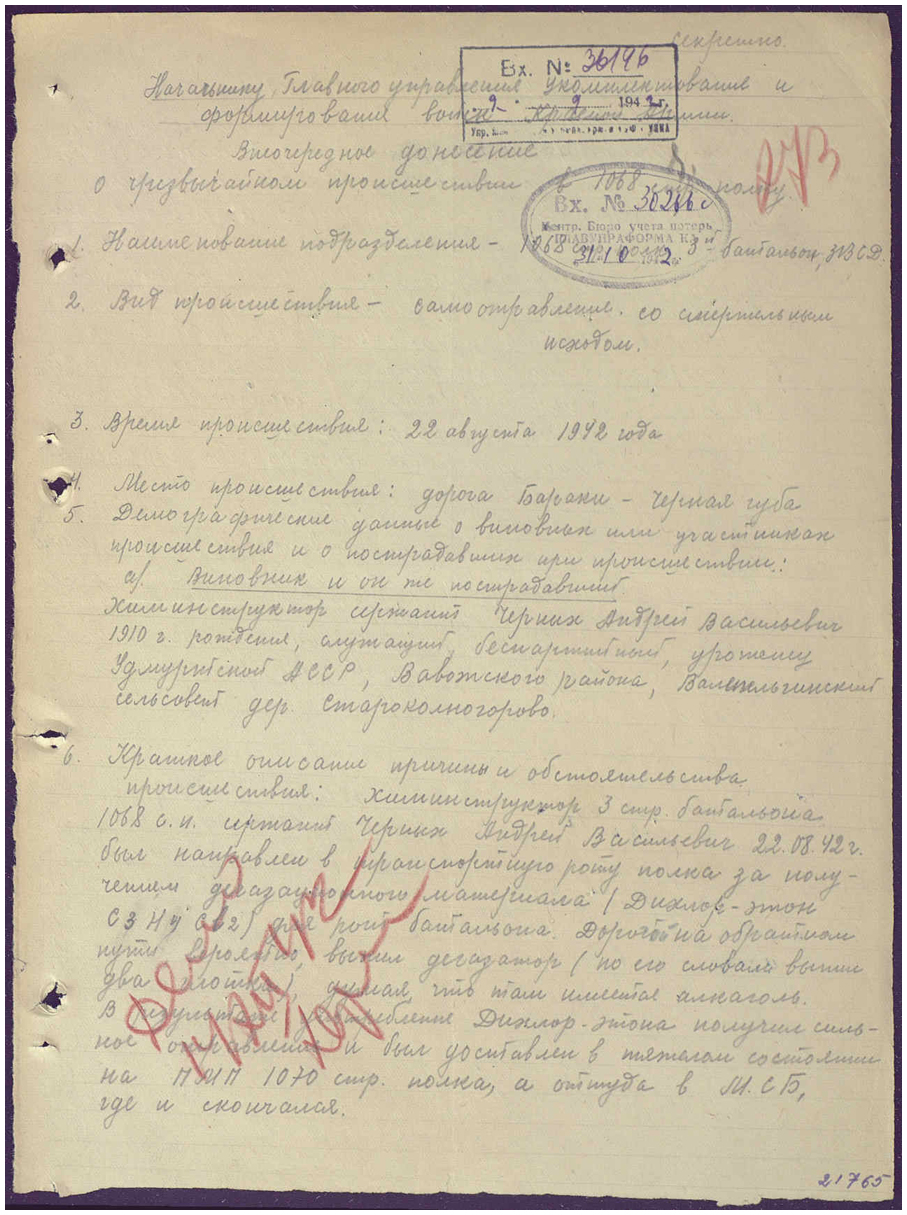 секретно.
Вх. № 36196
Начальнику Главного управления укомплектования и
9 9 1942 г.
формирования войск Красной Армии.
Внеочередное донесение
о чрезвычайном происшествии в 1068 стр. полку.
Вх. № 30266 с
Центр. Бюро учета потерь
ГЛАВУПРАФОРМА КА
31 10 1942 г.
1. Наименование подразделения – 1068 3й батальон, ЗВСД.
2. Вид происшествия – самоотравление со смертельным
исходом.
3. Время происшествия: 22 августа 1942 года
4. Место происшествия: дорога Бараки – Черная губа
5. Демографические данные о виновных или участниках
происшествия и о пострадавших при происшествии:
а/. Виновник и он же пострадавший
Химинструктор сержант Черных Андрей Васильевич
1910 г. рождения, служащий, беспартийный, уроженец
Удмуртской АССР, Вавожского района,
сельсовет дер. Староколногорово.
6. Краткое описание причины и обстоятельства
происшествия: химинструктор 3 стр. батальона
1068 с.п. сержант Черных Андрей Васильевич 22.08.42 г.
был направлен в транспортную роту полка за полу-
чением дегазационного материала / Дихлор-этон
для рот батальона. Дорогой на обратном
пути вероятно, выпил дегазатор / по его словам выпил
два глотка/, думая, что там имеется алкаголь.
В результате употребление Дихлор-этона получил силь-
ное отравление и был доставлен в тяжелом состоянии
на ПМП 1070 стр. полка, а оттуда в М.С.Б,
где и скончался.
21765